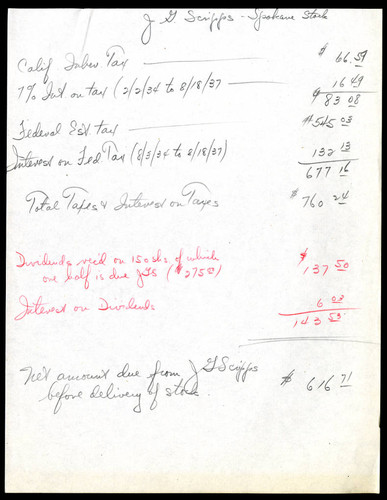 J G Scripps - Spokane Stock
Calif Inher Tax $ 66.59
7% Int on tax (2/2/34 to 8/18/37 16 49
$ 83 08
Federal Est tax $545 03
Interest on Fed Tax (8/3/34 to 8/18/37) 132 13
677 16
Total Taxes & Interest on Taxes $ 760 24
Dividends rec'd on 150 shs of which
one half is due JGS ($275 00) $ 137 50
Interest on Dividends 6 03
143 53
Net amount due from J G Scripps
before delivery of stock. $ 616 71